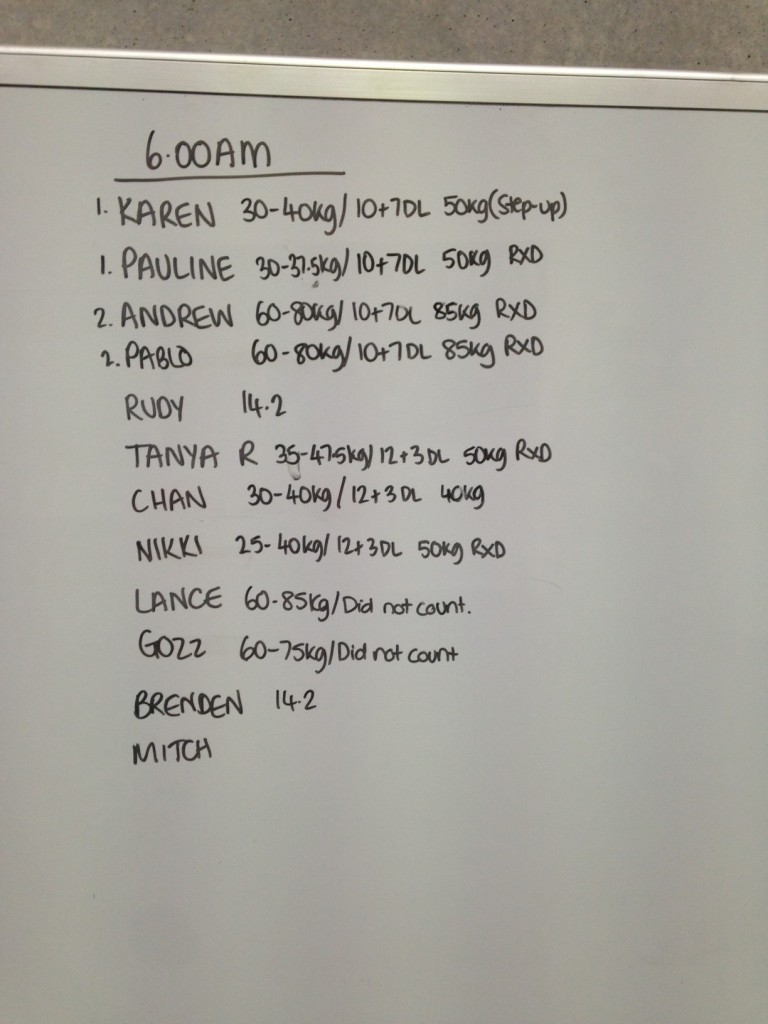 6.00AM
1. KAREN 30-40kg/ 10+7DL 50kg (Step-up)
1. PAULINE 30-37.5kg/ 10+7DL 50kg RXD
2. ANDREW 60-80kg/ 10+7DL 85kg RXD
2. PABLO 60-80kg/ 10+7DL 85kg RXD
RUDY 14.2
TANYA R 35-47.5kg/ 12+3DL 50kg RXD
CHAN 30-40kg/ 12+3DL 40kg
NIKKI 25-40kg/ 12+3DL 50kg RXD
LANCE 60-85kg/Did not count.
GOZZ 60-75kg/Did not count
BRENDEN 14.2
MITCH